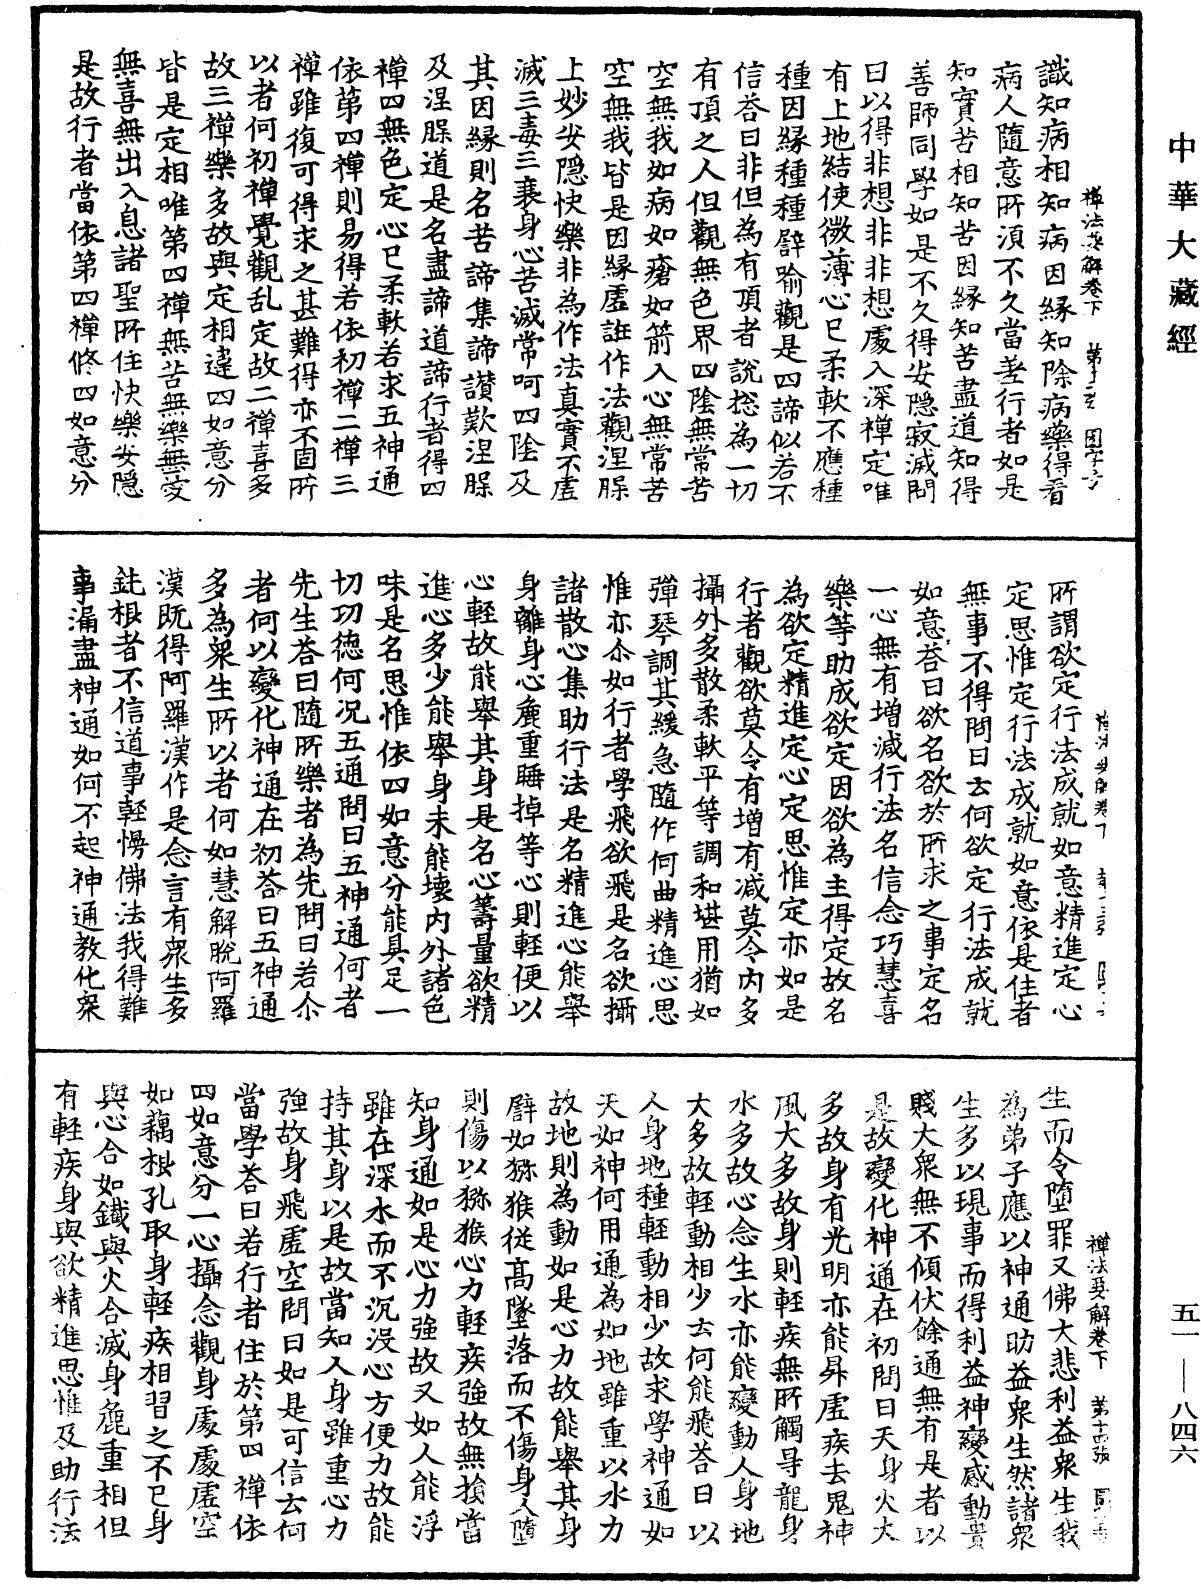 中華大藏經
禪法要解卷下
識知病相知病因緣知除病藥得看
病人隨意所須不久當差行者如是
知實苦相知苦因緣知苦盡道知得
善師同學如是不久得安隱寂滅問
曰以得非想非非想處入深禪定唯
有上地結使微薄心已柔軟不應種
種因緣種種譬喻觀是四諦似若不
信荅曰非但為有頂者說揔為一切
有頂之人但觀無色界四陰無常苦
空無我如病如瘡如箭入心無常苦
空無我皆是因緣虛誑作法觀涅槃
上妙安隱快樂非為作法真實不虛
滅三毒三衰身心苦滅常呵四陰及
其因緣則名苦諦集諦讃歎涅槃
及涅槃道是名盡諦道諦行者得四
禪四無色定心已柔軟若求五神通
依第四禪則易得若依初禪二禪三
禪雖復可得求之甚難得亦不固所
以者何初禪覺觀乱定故二禪喜多
故三禪樂多故與定相違四如意分
皆是定相唯第四禪無苦無樂無憂
無喜無出入息諸聖所住快樂安隱
是故行者當依第四禪修四如意分
所謂欲定行法成就如意精進定心
定思惟定行法成就如意依是住者
無事不得問曰云何欲定行法成就
如意荅曰欲名欲於所求之事定名
一心無有增減行法名信念巧慧喜
樂等助成欲定因欲為主得定故名
為欲定精進定心定思惟定亦如是
行者觀欲莫令有增有减莫令內多
攝外多散柔軟平等調和堪用猶如
彈琴調其緩急隨作何曲精進心思
惟亦尒如行者學飛欲飛是名欲攝
諸散心集助行法是名精進心能舉
身離身心麁重睡掉等心則輕便以
心輕故能舉其身是名心籌量欲精
進心多少能舉身未能壞內外諸色
味是名思惟依四如意分能具足一
切功德何況五通問曰五神通何者
先生荅曰隨所樂者為先問曰若尒
者何以變化神通在初荅曰五神通
多為衆生所以者何如慧解脫阿羅
漢既得阿羅漢作是念言有衆生多
鈍根者不信道事輕慢佛法我得難
事漏盡神通如何不起神通教化衆
禪法要解卷下
生而令墮罪又佛大悲利益衆生我
為弟子應以神通助益衆生然諸衆
生多以現事而得利益神變感動貴
賤大衆無不傾伏餘通無有是者以
是故變化神通在初問曰天身火大
多故身有光明亦能昇虛疾去鬼神
風大多故身則輕疾無所觸㝵龍身
水多故心念生水亦能變動人身地
大多故輕動相少云何能飛荅曰以
人身地種輕動相少故求學神通如
天如神何用通為如地雖重以水力
故地則為動如是心力故能舉其身
譬如猕猴從高墜落而不傷身人墮
則傷以猕猴心力輕疾強故無損當
知身通如是心力強故又如人能浮
雖在深水而不沉沒心方便力故能
持其身以是故當知人身雖重心力
強故身飛虛空問曰如是可信云何
當學荅曰若行者住於第四禪依
四如意分一心攝念觀身處處虛空
如藕根孔取身輕疾相習之不已身
與心合如鐵與火合滅身麁重相但
有輕疾身與欲精進思惟及助行法
五一—八四六